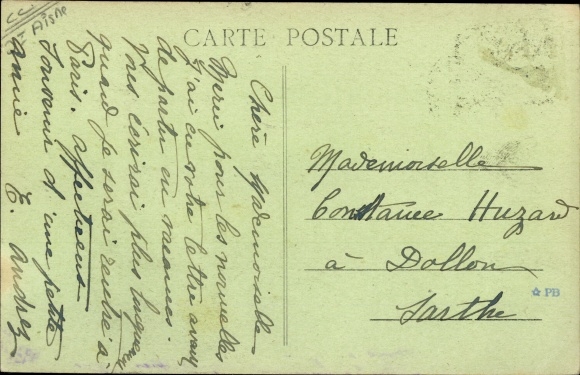 Aisne
CARTE POSTALE
Chère Mademoiselle
Merci pour les nouvelles
J'ai eu votre lettre avant
de partir en vacances.
Vous écrirai plus longuement
quand je serai rentré à
Paris. affectueux
Souvenir d'une petite
amie E. Andrey
Mademoiselle
Constance Huzard
à Dollon
Sarthe
PB